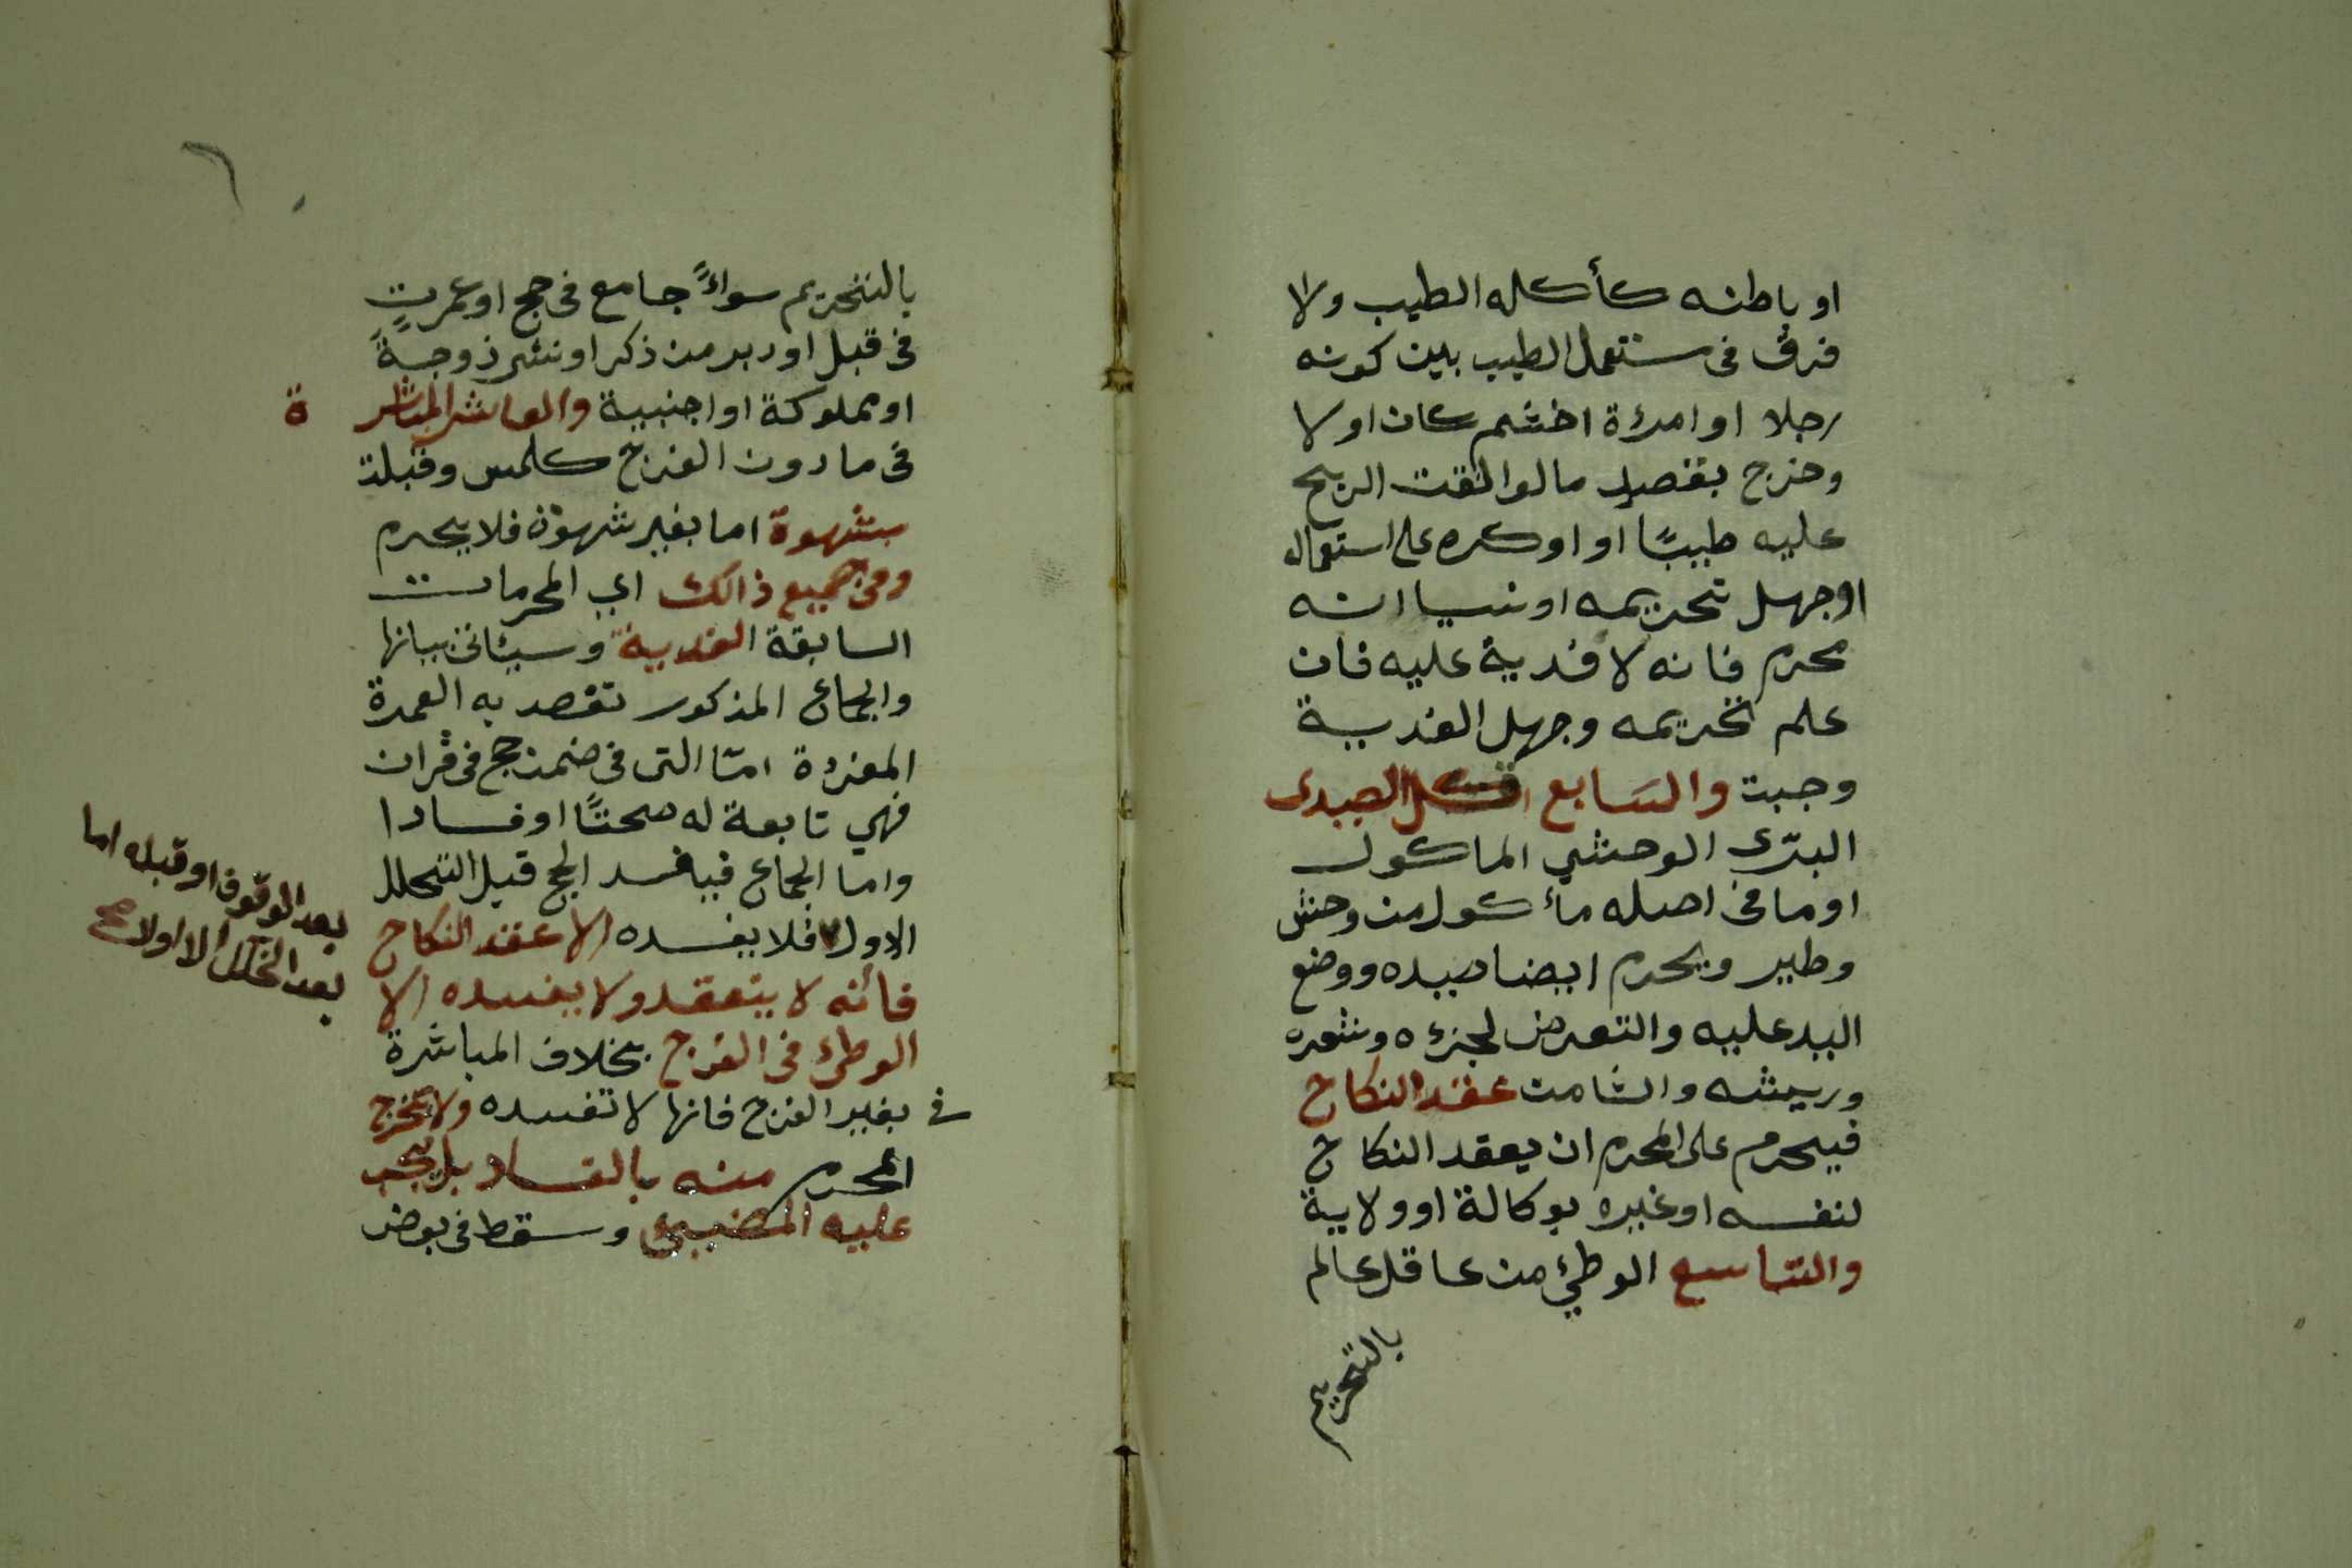 او باطنه كأكله الطيب ولا
فرق فى مستعمل الطيب بين كونه
رجلا او امرءة اخشم كان اولا
وخرج بقصد مالوا لقت الريح
عليه طيبًا او اوكره على استعماله
اوجهل تحريمه او نسيا انه
محرم فانه لا فدية عليه فان
علم تحريمه وجهل الفدية
وجبت والسابع قتل الصيدى
البرّى الوحشي الماكول
اوما فى اصله مأكول من وحش
وطير ويحرم ايضا صيده ووضع
اليد عليه والتعرض لجزءه وشعره
وريشه والثامن عقد النكاح
فيحرم على المحرم ان يعقد النكاح
لنفسه اوغيره بوكالة اوولاية
والتاسع الوطئ من عاقل عالم
بالتحريم
٦
بالتحريم سواءً جامع فى حج اوعمرتٍ
فى قبل اودبر من ذكر اونثى زوجةً
اومملوكة او اجنبية والعاشر المباشر ة
فى مادون الفرج كلمس وقبلة
بشهوة اما بغير شهوة فلا يحرم
وفى جميع ذالك اي المحرمات
السابقة الفدية وسيئاتى بيانها
والجماع المذكور تقصد به العمرة
المفردة امّا التى فى ضمن حج فى قران
فهي تابعة له صحتًا اوفسادا
واما الجماع فيفسد الحج قبل التحلل
الاول فلا يفسده الا عقد النكاح
بعد الوقوف اوقبله اما
بعد التحلل الاولا صح
فأنه لا ينعقد ولا يفسده الا
الوطئ فى الفرج بخلاف المباشرة
فى بغير الفرج فانها لا تفسده ولا يخرج
المحرم منه بالفساد بل يجب
عليه المضيئ وسقط فى بعض